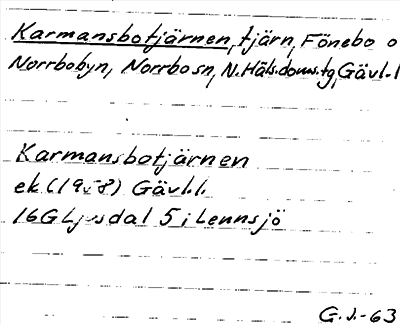 Karmansbotjärnen, tjärn, Fönebo o
Norrbobyn, Norrbo sn, N. Häls. doms.tg, Gävl. l
Karmansbotjärnen
ek (1958) Gävl. l.
16G Ljusdal 5 i Lennsjö
G. J.-63